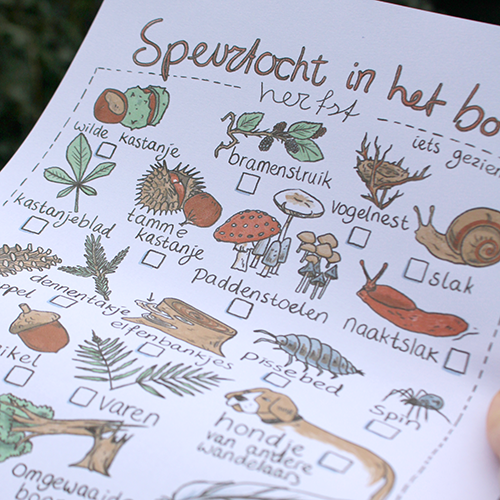 Speurtocht in het bo
herfst
iets gezien
wilde kastanje
bramenstruik
vogelnest
slak
kastanjeblad
tamme
kastanje
paddenstoelen
naaktslak
dennentakje
ppel
elfenbankjes
pissebed
spin
ikel
varen
hondje
van andere
wandelaars
Omgewaaide
boo